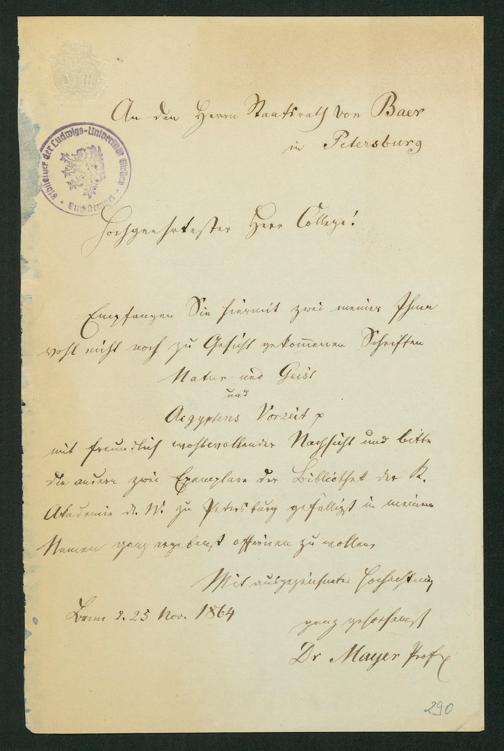 An den Herrn Staatsrath von Baer
in Petersburg
Bibliothek der Ludwigs-Universität Giessen
Hochgeehrtester Herr College!
Empfangen Sie hiermit zwei meiner Ihnen
wohl nicht noch zu Gesicht gekommenen Schriften
Natur und Geist
und
Aegyptens Vorzeit
mit freundlich wohlwollender Nachsicht und bitte
die andern zwei Exemplare der Bibliothek der K.
Akademie d. W. zu Petersburg gefälligst in meinem
Namen ganz ergebenst offeriren zu wollen,
Mit ausgezeichneter Hochachtung
Bonn d. 25 Nov. 1864
ganz gehorsamst
Dr Mayer Prof
290